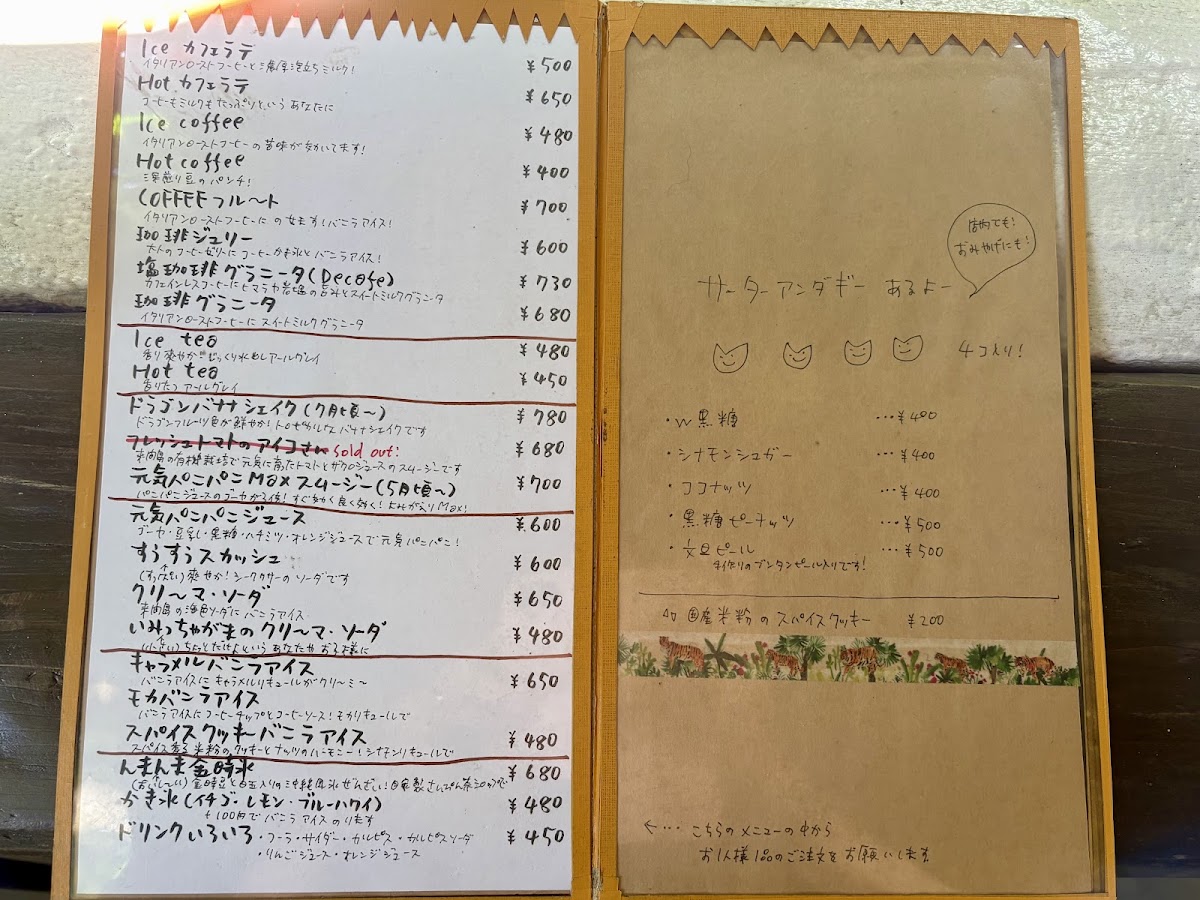 Ice カフェラテ ¥500
イタリアンローストコーヒーと濃厚泡立ちミルク!
Hot カフェラテ ¥650
コーヒーもミルクもたっぷりという あなたに
Ice coffee ¥480
イタリアンローストコーヒーの苦味が効いてます!
Hot coffee ¥400
深煎り豆のパンチ!
COFFEE フル〜ト ¥700
イタリアンローストコーヒーに の女ます!バニラアイス!
珈琲ジュリー ¥600
大人のコーヒーゼリーにコーヒーかき氷とバニラアイス!
塩珈琲グラニータ(Decafe) ¥730
カフェインレスコーヒーにヒマラヤ岩塩の旨みとスイートミルクグラニータ
珈琲グラニータ ¥680
イタリアンローストコーヒーに スイートミルクグラニータ
Ice tea ¥480
香り爽やか じっくり水出しアールグレイ
Hot tea ¥450
香りたつ アールグレイ
ドラゴンバナナシェイク(7月頃〜) ¥780
ドラゴンフルーツ色が鮮やか! バナナシェイクです
フレッシュトマトのアイコさん sold out: ¥680
の有機栽培で元気に育ったトマトとザクロジュースのスムージーです
元気パニパニMaxスムージー(5月頃〜) ¥700
パニパニジュースのゴーヤが 倍! すぐ効く良く効く! Max!
元気パニパニジュース ¥600
ゴーヤ・豆乳・黒糖・ハチミツ・オレンジジュースで元気パニパニ!
すうすうスカッシュ ¥600
(すっぱい) 爽やか! シークヮサーの ソーダです
クリ〜マ・ソーダ ¥650
の 色ソーダに バニラアイス
いみっちゃがまのクリ〜マ・ソーダ ¥480
(小さい) ちょっとだけよという あなたや お子様に
キャラメルバニラアイス ¥650
バニラアイスに キャラメルリキュールがクリ〜ミ〜
モカバニラアイス
バニラアイスにコーヒーチップとコーヒーソース! モカリキュールで
スパイスクッキーバニラアイス ¥480
スパイス香る 米粉のクッキーとナッツのハーモニー! シナモンリキュールで
んまんま金時氷 ¥680
(おいし〜い) 金時豆と白玉入りの沖縄風氷ぜんざい! 自家製さんぴん茶シロップで
かき氷(イチゴ・レモン・ブルーハワイ) ¥480
+100円で バニラアイス のります
ドリンクいろいろ ・コーラ・サイダー・カルピス・カルピスソーダ ¥450
・りんごジュース・オレンジジュース
店内でも!
おみやげにも!
サーターアンダギー あるよー
4コ入り!
・W黒糖 …¥400
・シナモンシュガー …¥400
・ココナッツ …¥400
・黒糖ピーナッツ …¥500
・文旦ピール …¥500
手作りのブンタンピール入りです!
☆国産米粉のスパイスクッキー ¥200
←… こちらのメニューの中から
お1人様1品のご注文をお願いします